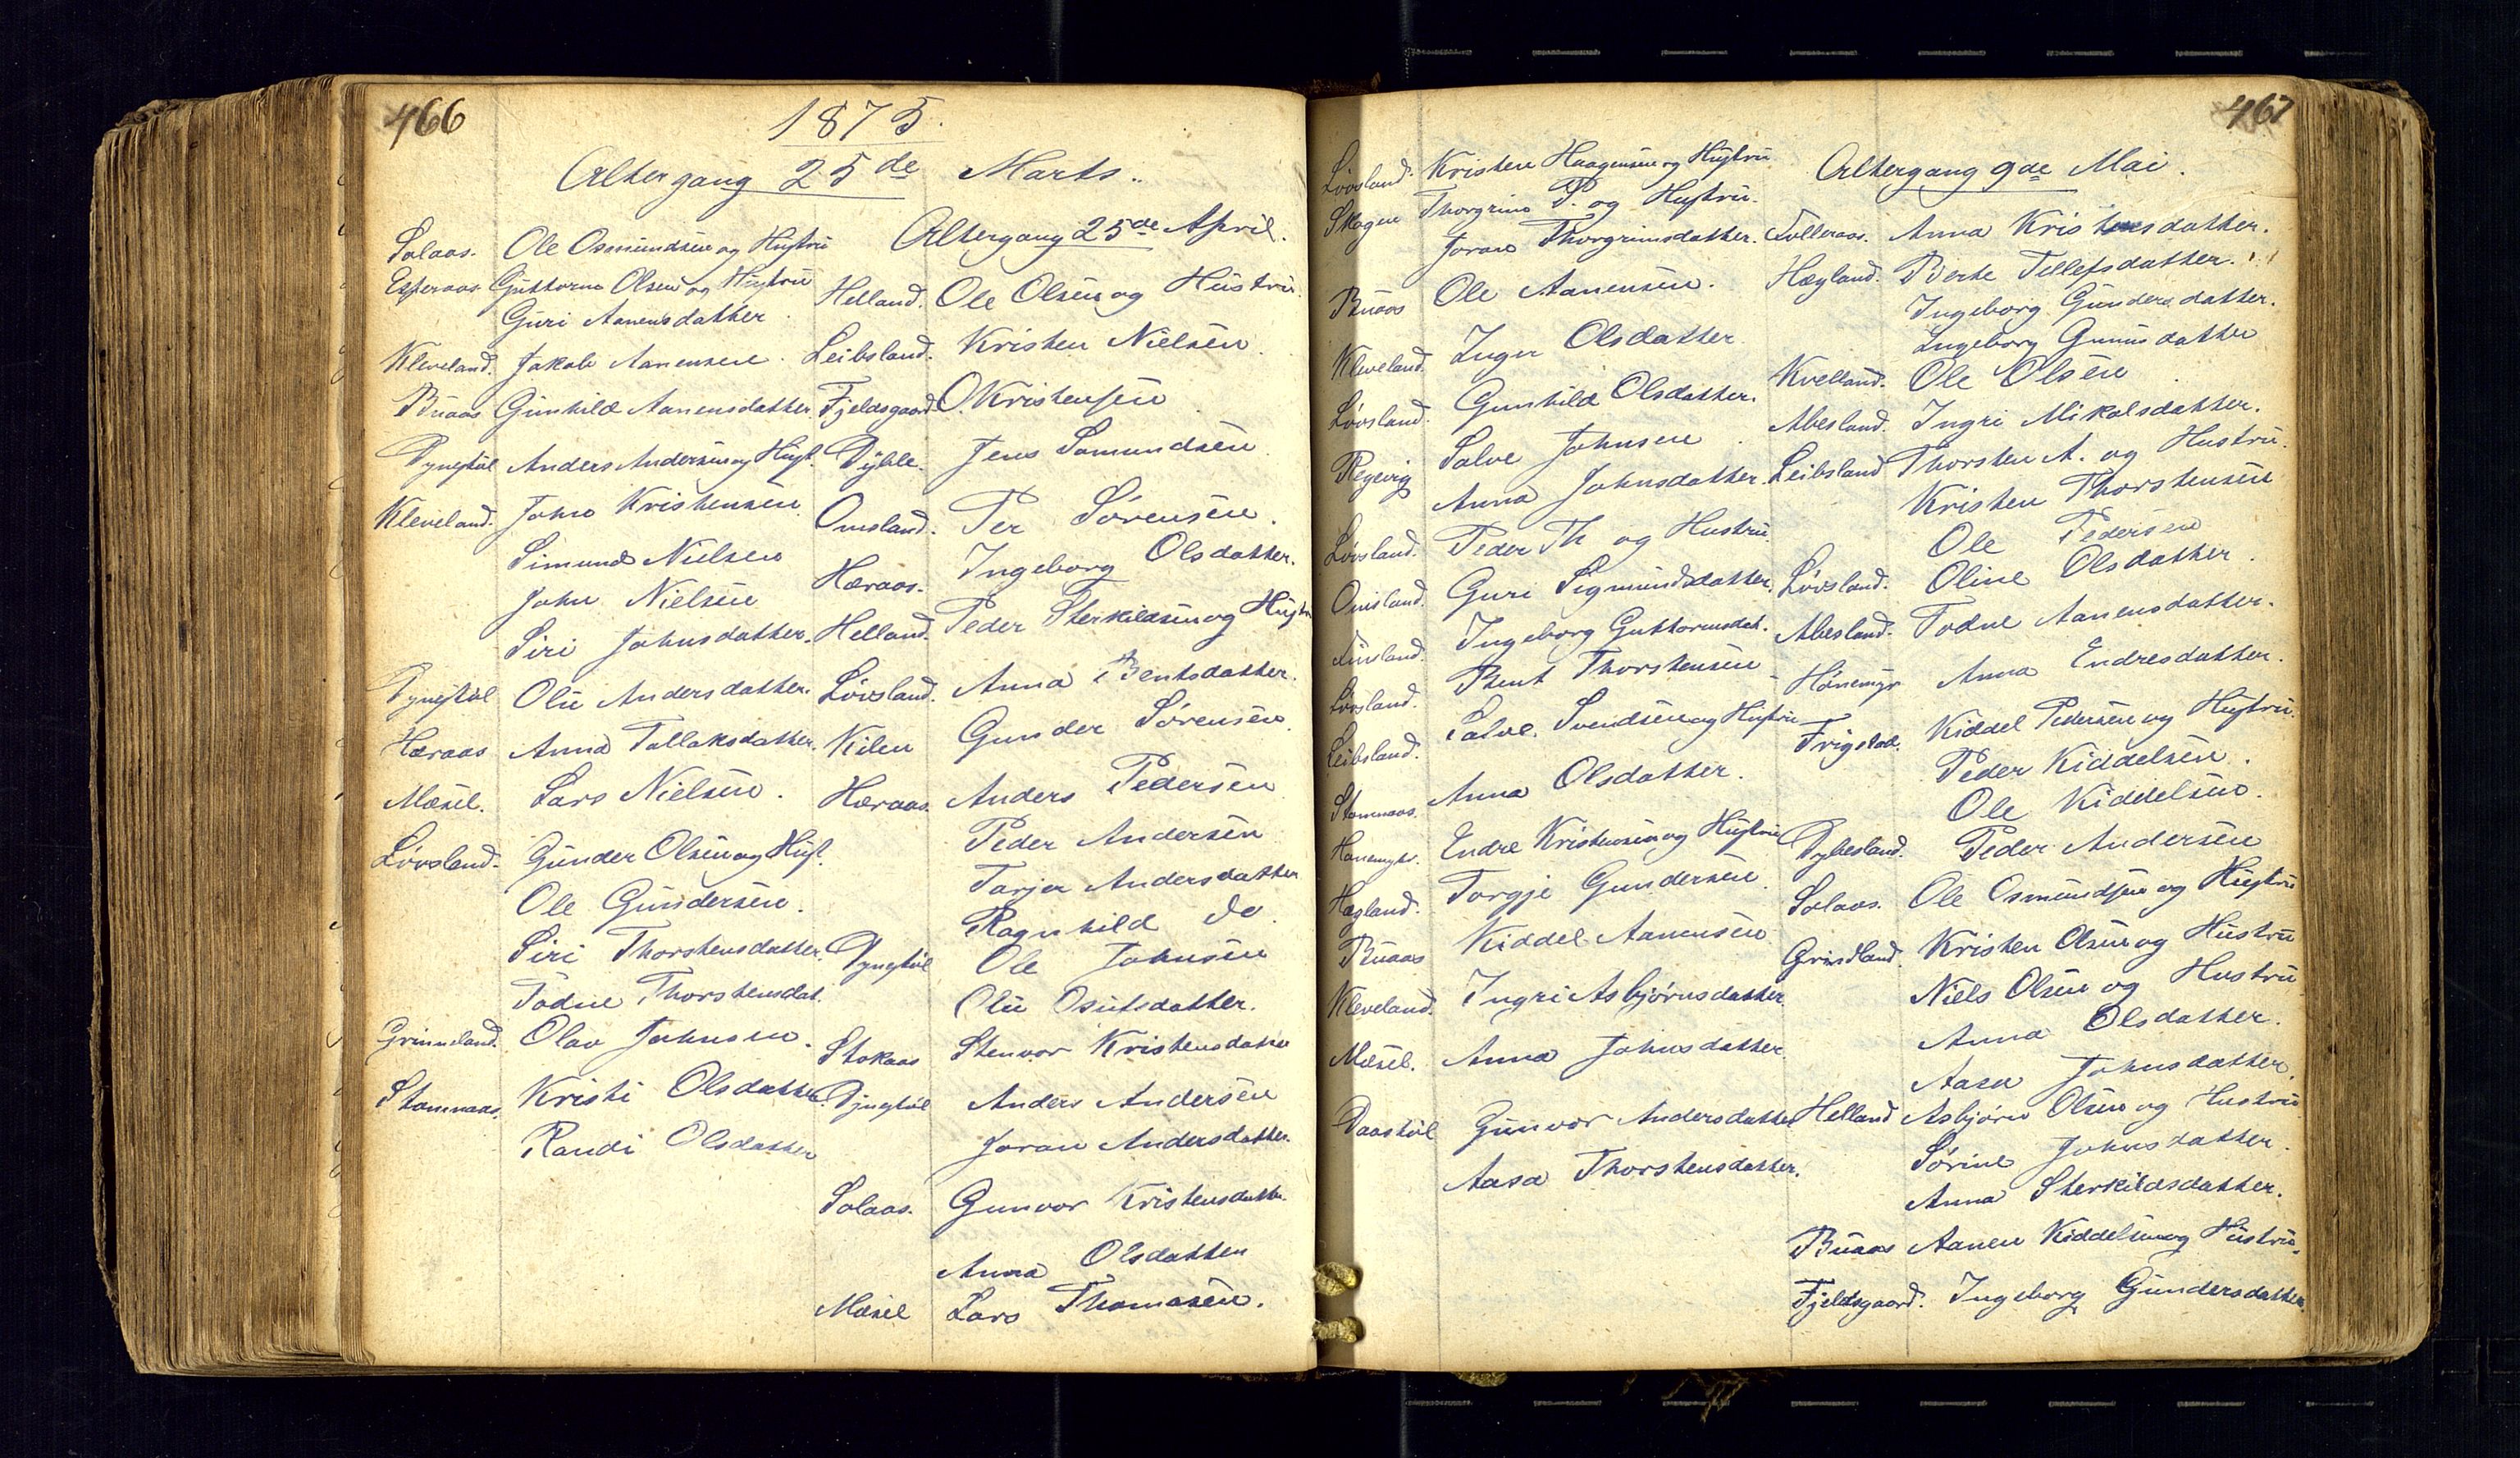 466
1875.
Altergang 25de Marts.
Solaas. Ole Osmundsen og Hustru
Esperaas. Guttorm Olsen og Hustru
Guri Aanensdatter.
Kleveland. Jakob Aanensen.
Buaas Gunhild Aanensdatter.
Dynestøl Anders Andersen og Hust.
Kleveland. John Kristensen.
Simund Nielsen
John Nielsen
Siri Johnsdatter.
Dynestøl Olu Andersdatter.
Høraas Anna Tallaksdatter.
Mæsel. Lars Nielsen.
Løvsland. Gunder Olsen og Hust.
Ole Gundersen.
Siri Thorstensdatter.
Todne Thorstensdat.
Grimeland. Olav Johnsen.
Stomnaas. Kristi Olsdatter.
Randi Olsdatter
Altergang 25de April.
Helland. Ole Olsen og Hustru.
Leibsland. Kristen Nielsen.
Fjeldsgaard. O. Kristensen.
Dyble. Jens Somundsen
Omsland. Per Sørensen.
Høraas. Ingeborg Olsdatter.
Helland. Peder Sterkildsen og Hustru
Løvsland. Anna Bentsdatter.
Kilen Gunder Sørensen.
Høraas. Anders Pedersen
Peder Andersen
Tarjer Andersdatter
Ragnhild do.
Dynestøl Ole Johnsen
Olu Osutsdatter.
Stokaas Stenvor Kristensdatter
Dynestøl Anders Andersen
Joran Andersdatter.
Solaas. Gunvor Kristensdatter.
Anna Olsdatter
Mæsel Lars Thomasen.
467
Løvsland. Kristen Haagensen og Hustru
Skogen Thorgrim P. og Hustru.
Joran Thorgrimsdatter.
Buaas Ole Aanensen.
Kleveland. Inger Olsdatter
Løvsland. Gunhild Olsdatter.
Regevig Salve Johnsen.
Anna Johnsdatter.
Løvsland. Peder Th og Hustru.
Omsland. Guri Sigmundsdatter.
Finsland. Ingeborg Guttormsdat.
Løvsland. Bent Thorstensen
Leibsland. Salve Svendsen og Hustru
Stomnaas. Anna Olsdatter.
Hønemyr. Endre Kristensen og Hustru
Hægland. Torgje Gundersen.
Buaas Kiddel Aanensen
Kleveland. Ingri Asbjørnsdatter.
Mæsel. Anna Johnsdatter.
Daastøl Gunvor Andersdatter
Aasa Thorstensdatter.
Altergang 9de Mai.
Folleraas. Anna Kristensdatter.
Hægland. Berte Tellefsdatter.
Ingeborg Gundersdatter.
Ingeborg Gunnisdatter
Kvelland. Ole Olsen.
Abesland. Ingri Mikalsdatter.
Leibsland Thorsten A. og Hustru.
Kristen Thorstensen
Ole Pedersen
Løvsland. Oline Olsdatter.
Abesland. Todne Aanensdatter.
Hønemyr Anna Endresdatter.
Frigstad. Kiddel Pedersen og Hustru.
Peder Kiddelsen.
Ole Kiddelsen.
Dybesland. Peder Andersen
Solaas. Ole Osmundsen og Hustru
Grindland. Kristen Olsen og Hustru
Niels Olsen og Hustru
Anna Olsdatter.
Aasa Johnsdatter.
Helland Asbjørn Olsen og Hustru
Sørine Johnsdatter.
Anna Sterkildsdatter.
Buaas Aanen Kiddelsen og Hustru.
Fjeldsgaard. Ingeborg Gundersdatter.